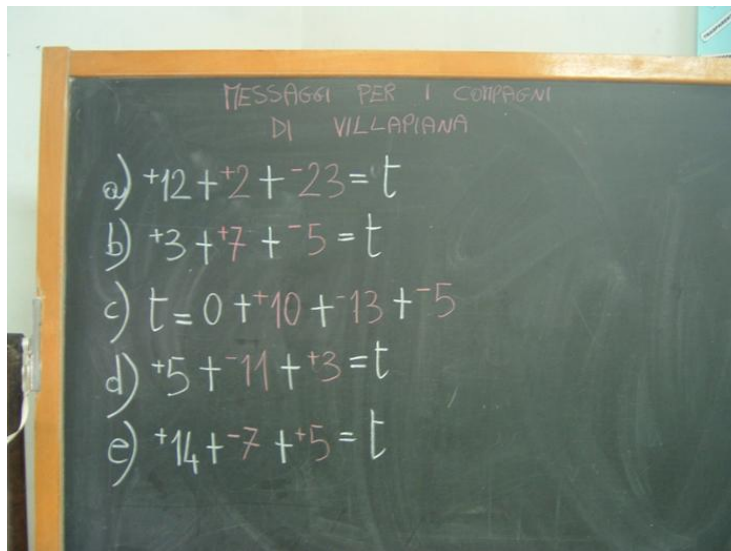 MESSAGGI PER I COMPAGNI
DI VILLAPIANA
a) ⁺12 + ⁺2 + ⁻23 = t
b) ⁺3 + ⁺7 + ⁻5 = t
c) t = 0 + ⁺10 + ⁻13 + ⁻5
d) ⁺5 + ⁻11 + ⁺3 = t
e) ⁺14 + ⁻7 + ⁺5 = t